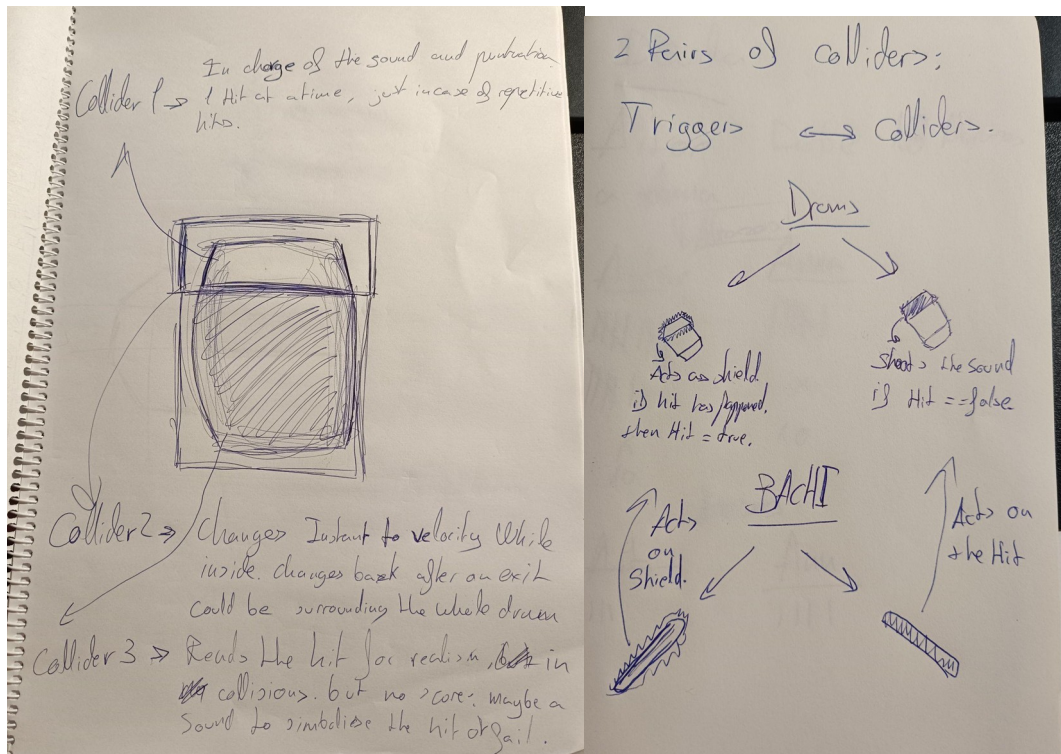 In charge of the sound and puntuation
Collider 1 → 1 Hit at a time, just incase of repetitive
hits.
Collider 2 → Changes Instant to velocity While
inside. changes back after an exit
Could be surrounding the whole drum
Collider 3 → Reads the hit for realism, in
collisions. but no score: maybe a
Sound to simbolise the hit or fail.
2 Pairs of Colliders:
Triggers ↔ Colliders.
Drums
Acts as shield
if hit has happened.
then Hit = true.
Shoots the sound
if Hit == false
BACHI
Acts
on
Shield.
Acts on
the Hit